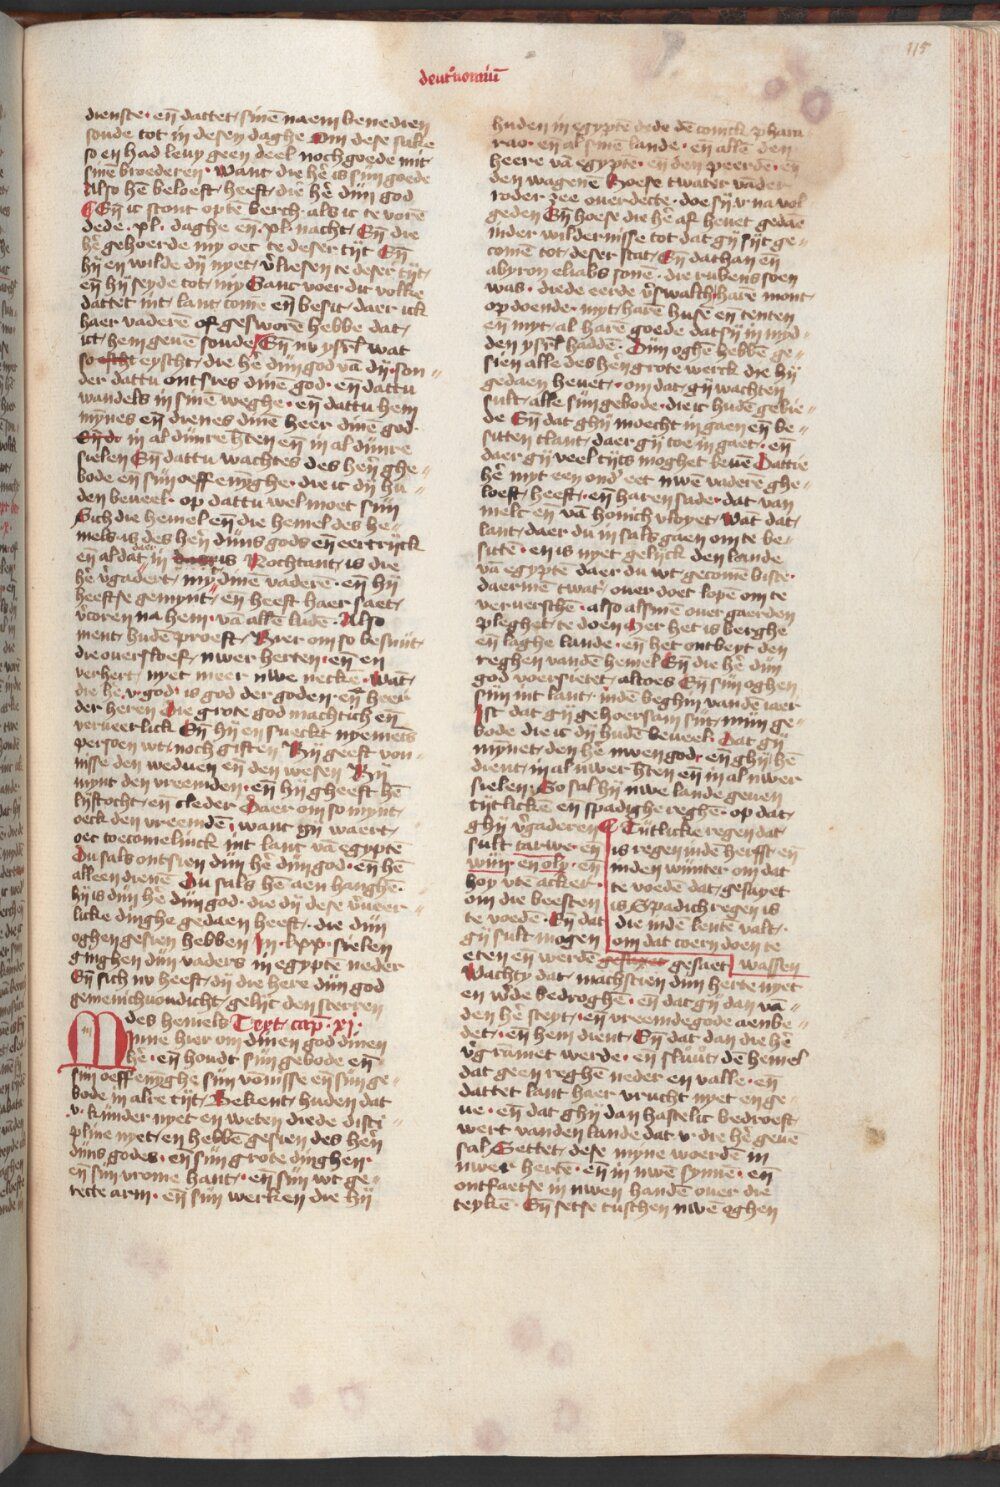 115
deut'nomiū
dienste · en̄ dattet sinē naem benedien
soude tot in desen daghe Om dese sake
so en had leuy geen deel noch goede mit
sinē broederen · Want die hē is sijn goede
Also hē beloeft heeft die hē dijn god
En̄ ic stont optē berch als ic te vorē
dede · xl · daghe en · xl · nacht En̄ die
hē gehoerde my oec te deser tijt En̄
hij en wilde dij nyet v'liesen te deser tijt
en̄ hij seyde tot my Ganc voer dit volke
dattet int lant come en̄ besit daer ick
haer vaderē of gesworē hebbe dat
ict hem geuē soude En̄ nv ysrl' wat
so eyscht die hē dijn god vā dij · son
der dattu ontsies dinē god · en̄ dattu
wandels in sinē weghe · en̄ dattu hem
mynnes en̄ dienes dinē heer dinē god
in al dijnre herten en̄ in al dijnre
sielen En̄ dattu wachtes des hen ghe
bode en̄ sijn oeffenīghe · die ic dij hu
den beueel · op dattu wel moet sijn
Sich die hemel en̄ die hemel des he
mels is des hen dijns gods en̄ eertrijck
en̄ al dat daer in is Nochtant is die
hē v'gadert myt dinē vaderē · en̄ hij
heeftse gemynt en̄ heeft haer saet
v'coren na hem · vā allē ludē · Also
ment huden proeft Hier om so besnijt
die ouersloef nwer herten en̄ en
verhert nyet meer nwe neckē · Want
die hē v god is god der goden · en̄ heer
der heren Die grote god machtich en̄
verueerlick En̄ hij en sueckt nyemēts
persoen wt noch giften Hij geeft von
nisse den weduen en̄ den wesen Hij
mynt den vreemden · en̄ hij gheeft hē
lijftocht en cleder Daer om so mynt
oeck den vreemdē want gij waert
oec toecomelinck int lant vā egyptē
Du sals ontsien dijn hē dijn god · en̄ hē
alleen dienē Du sals hē aen hanghē ·
hij is dijn hē dijn god · die dij dese v'ueer
licke dinghe gedaen heeft · die dijn
oghen gesien hebben In · lxx · sielen
ginghen dijn vaders in egyptē neder
En̄ sich nv heeft dij die here dijn god
gemenichuoudicht gelijc den sterren
des hemels Text cap · xj ·
Mynne hier om dinen god dinen
hē · en̄ houdt sijn gebode en̄
sijn oeffenīghe sijn vōnisse en̄ sijn ge
bode in alre tijt Bekent huden dat
v kinder nyet en weten die de disci
pline nyet en hebbē gesien des hen
dijns godes · en̄ sijn grote dinghen
en̄ sijn vrome hant · en̄ sijn wt ge
recte arm · en̄ sijn werken die hij
huden in egyptē dede dē conick phara
rao · en al sinē lande · en allē den
heere vā egypte · en den peerdē · en
den wagenē Hoese twater vāder
roder zee ouerdecte · doe sij v na vol
geden En̄ hoese die hē af heuet gedaē
inder wildernisse tot dat gij sijt ge
comē tot deser stat En̄ dathan en̄
abyron eliabs sonē · die rubens soen
was · die de eerde v'swalch harē mont
opdoende · myt harē husē en tenten
en myt al harē goede dat sij in mid
den ysrl' haddē · Dijn oghē hebbē ge
sien alle des hēn grote werck die hij
gedaen heuet · om dat gij wachten
sult alle sijn gebode · die ic hudē gebie
de En̄ dat ghij moecht in gaen en̄ be
sitten tlant daer gij toe in gaet · en̄
daer gij veel tijts moghet leuē Dattie
hē myt een ond' eet nwē vaderē ghe
loeft heeft · en̄ haren sade · dat van
melc en̄ vā honich vloyet Wat dat
lant daer du in sals gaen om te be
sittē · en is nyet gelijck den lande
vā egyptē daer du wt gecomē biste ·
daermē twat' ouer doet lopē om te
veruerschē · also alsmē ouer gaerden
pleghet te doen Mer het is berghe
en̄ laghe lande · en̄ het ontbeyt den
reghen vanden hemel En̄ die hē dijn
god voersietet altoes En̄ sijn oghen
sijn int lant indē beghin vandē iaer
Ist dat gij gehoersam sijt mijn ge
bode die ic dij hudē beueel · Dat gij
mynet den hē nwen god · en̄ ghij hē
dient in al nwer h'ten en̄ in al nwer
sielen So sal hij nwe lande geuen
tijtlickē en̄ spadighe reghē · op dat
ghij v'gaderen
sult tarwe · en̄
wijn en oly · en̄
hoy vtē acker
om die beesten
te voedē · En̄ dat
gij sult mogen
Tijtlicke regen dat
is regen indē herfst en̄
inden wijnter om dat
te voedē dat gesayet
is Spadich regen is
die indē lentē valt
om dat coern doen te
wassen
eten en̄ werdē gesaet
Wachty dat machscien dijn herte nyet
en w'de bedroghē · en̄ dat gij dan vā
den hē steyt · en̄ vreemde gode aenbe
det · en̄ hem dient En̄ dat dan die hē
v'gramet werde · en̄ sluut dē hemel
dat geen reghē neder en valle · en̄
dattet lant haer vrucht nyet en ge
ue · en̄ dat ghij dan hastelic bedroeft
wert vanden lande dat v die hē geuē
sal Settet dese myne woerdē in
nwer hertē · en̄ in nwē synnē · en̄
ontfaetse in nwen handē ouer die
teykē · En̄ setse tusschen nwe oghen